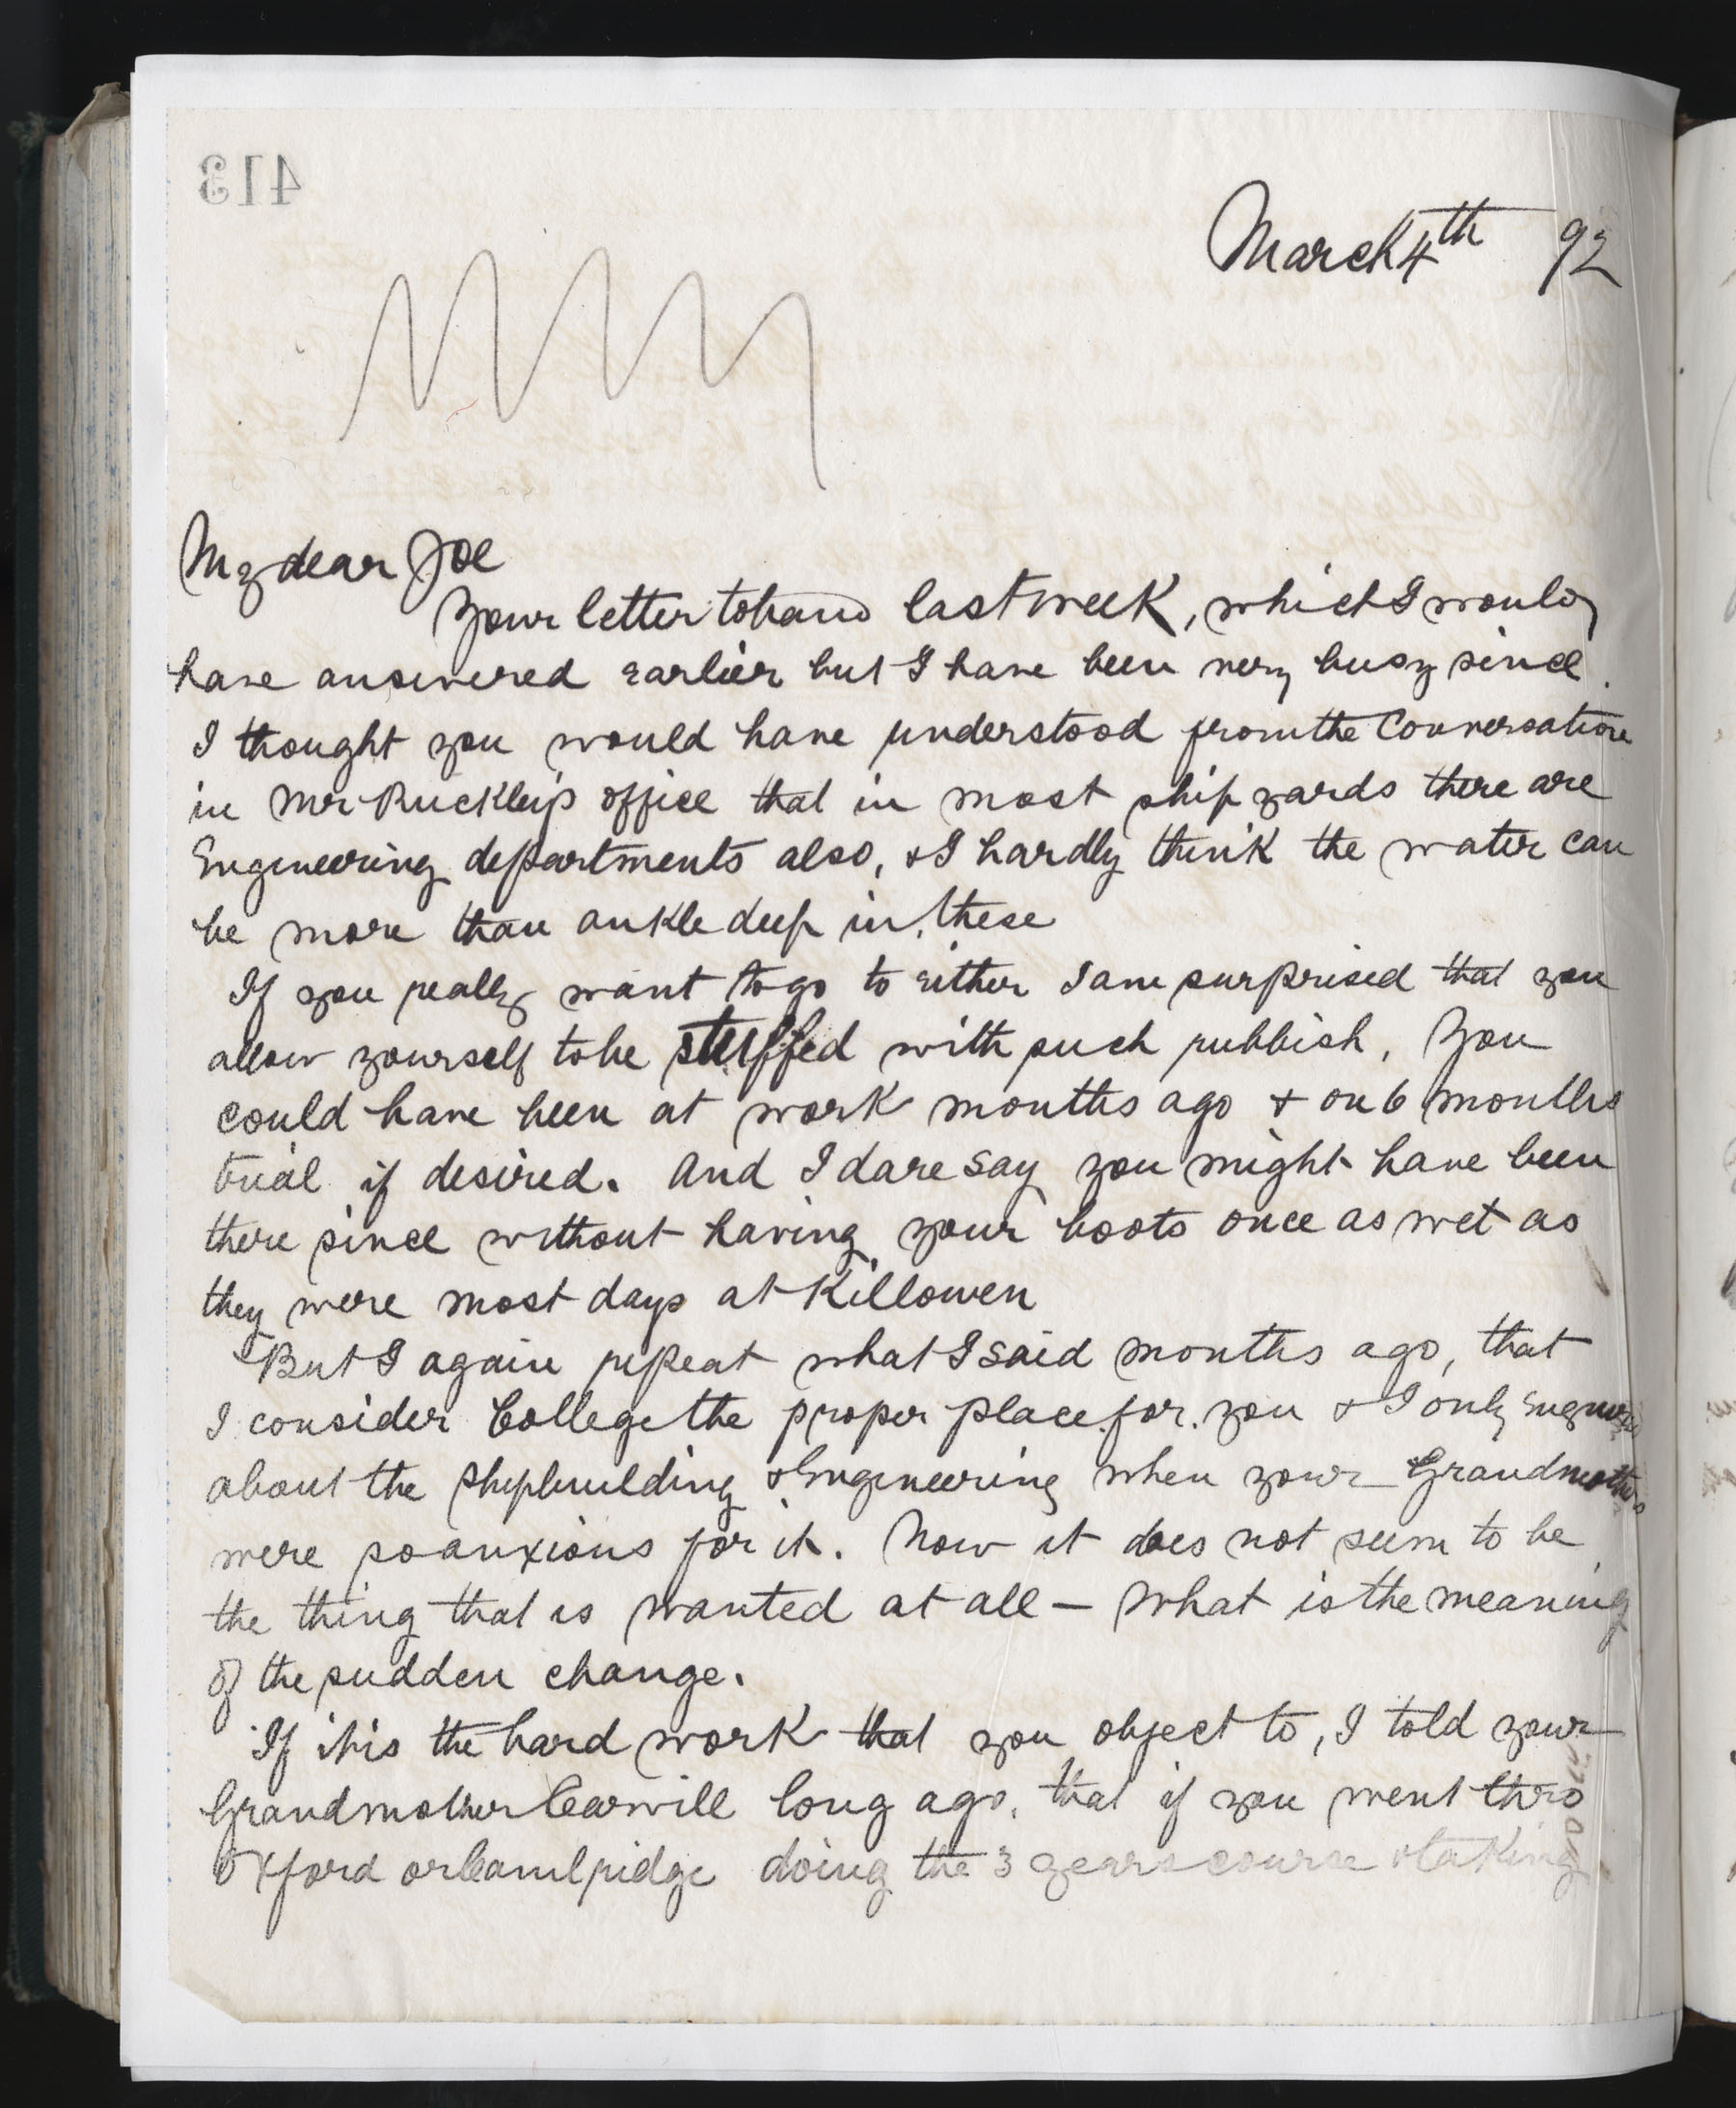 413
March 4th 92
My dear Joe
Your letter to hand last week, which I would
have answered earlier but I have been very busy since.
I thought you would have understood from the Conversation
in Mr Office that in most ship yards there are
Engineering departments also, & I hardly think the water can
be more than ankle deep in these
If you really want to go to either I am surprised that you
allow yourself to be stuffed with such rubbish, You
could have been at work months ago & on 6 months
trial if desired. And I dare say you might have been
there since without having your boots once as wet as
they were most days at Killowen
But I again repeat what I said months ago, that
I consider College the proper place for you & I only
about the Shipbuilding & Engineering when your Grandmothers
were so anxious for it. Now it does not seem to be
the thing that is wanted at all — What is the meaning
of the sudden change.
If it is the hard work that you object to, I told your
Grandmother long ago, that if you went thro
Oxford or Cambridge doing the 3 years course & taking